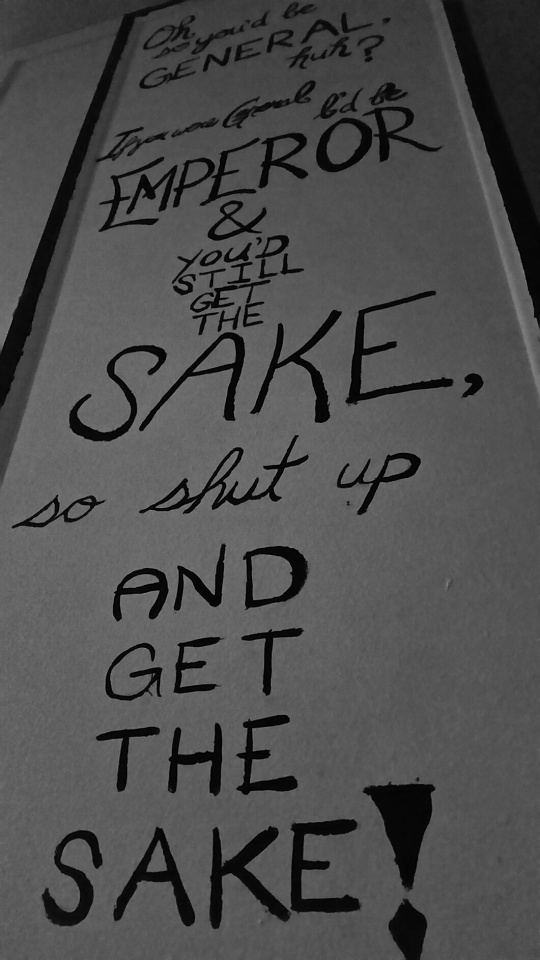 Oh,
so you'd be
GENERAL,
huh?
If you were General I'd be
EMPEROR
&
YOU'D
STILL
GET
THE
SAKE,
so shut up
AND
GET
THE
SAKE!